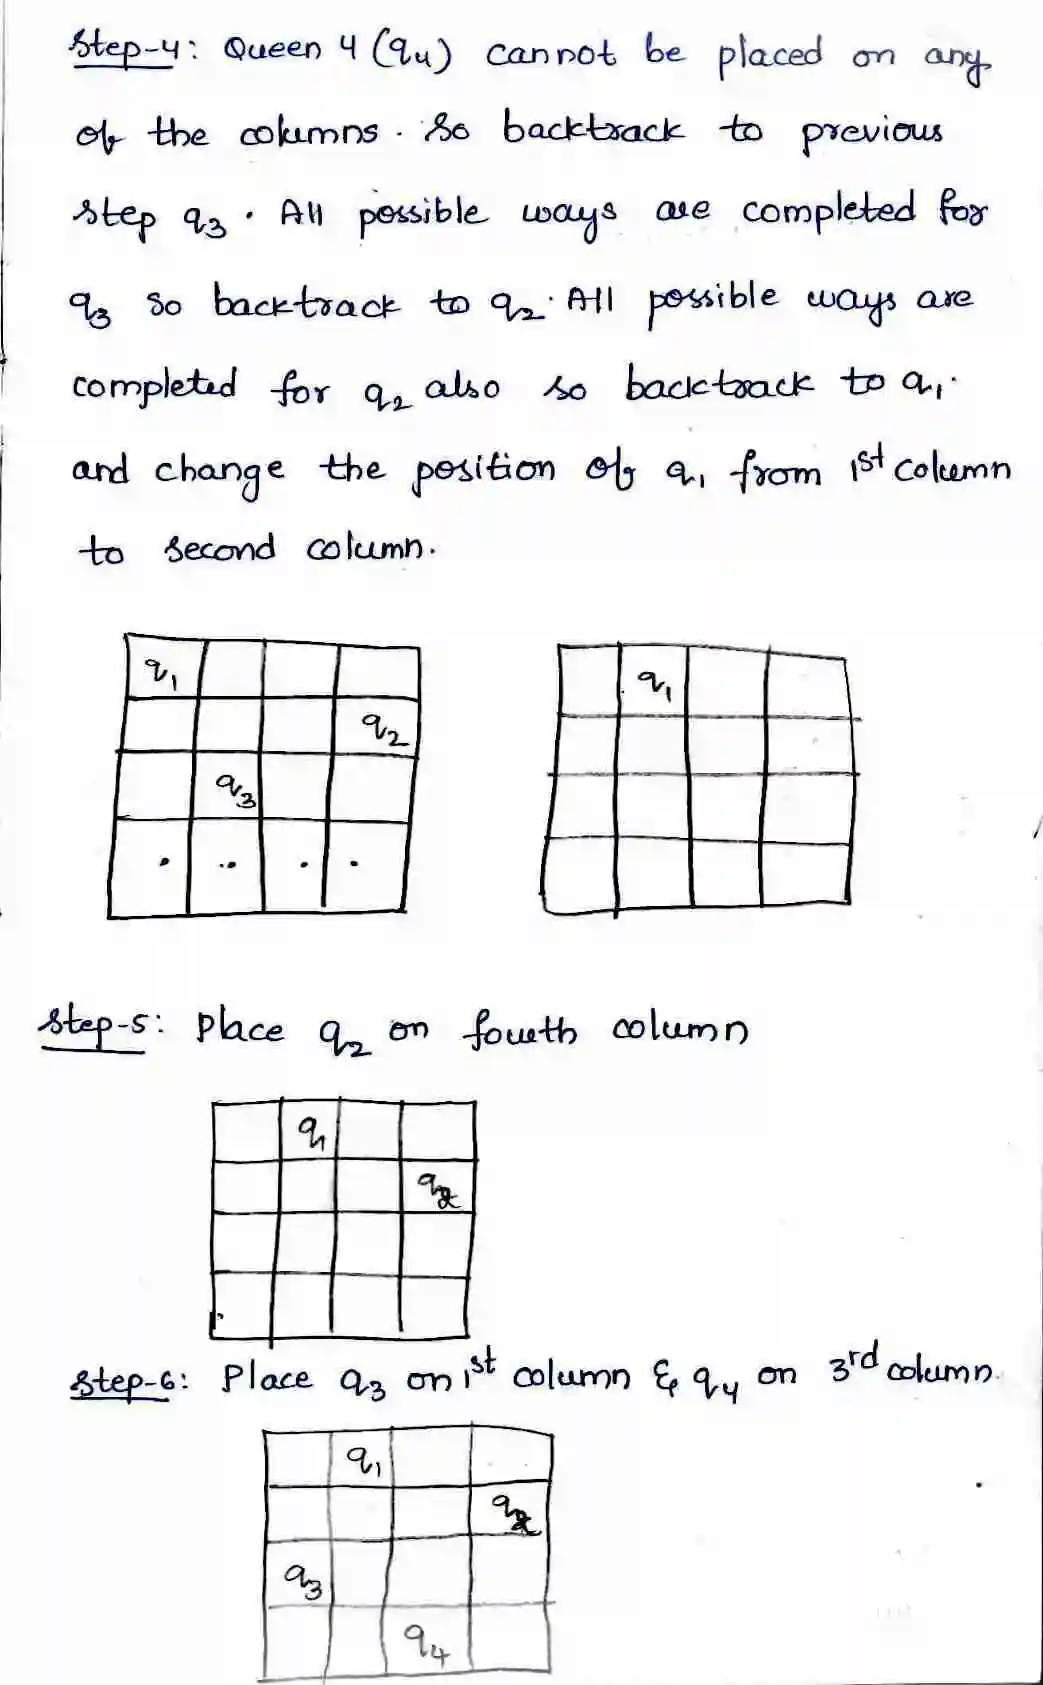 Step-4: Queen 4 (q4) cannot be placed on any
of the columns. So backtrack to previous
step q3. All possible ways are completed for
q3 so backtrack to q2. All possible ways are
completed for q2 also so backtrack to q1.
and change the position of q1 from 1st column
to second column.
q1
q2
q3
q1
Step-5: Place q2 on fourth column
q1
q2
Step-6: Place q3 on 1st column & q4 on 3rd column.
q1
q2
q3
q4